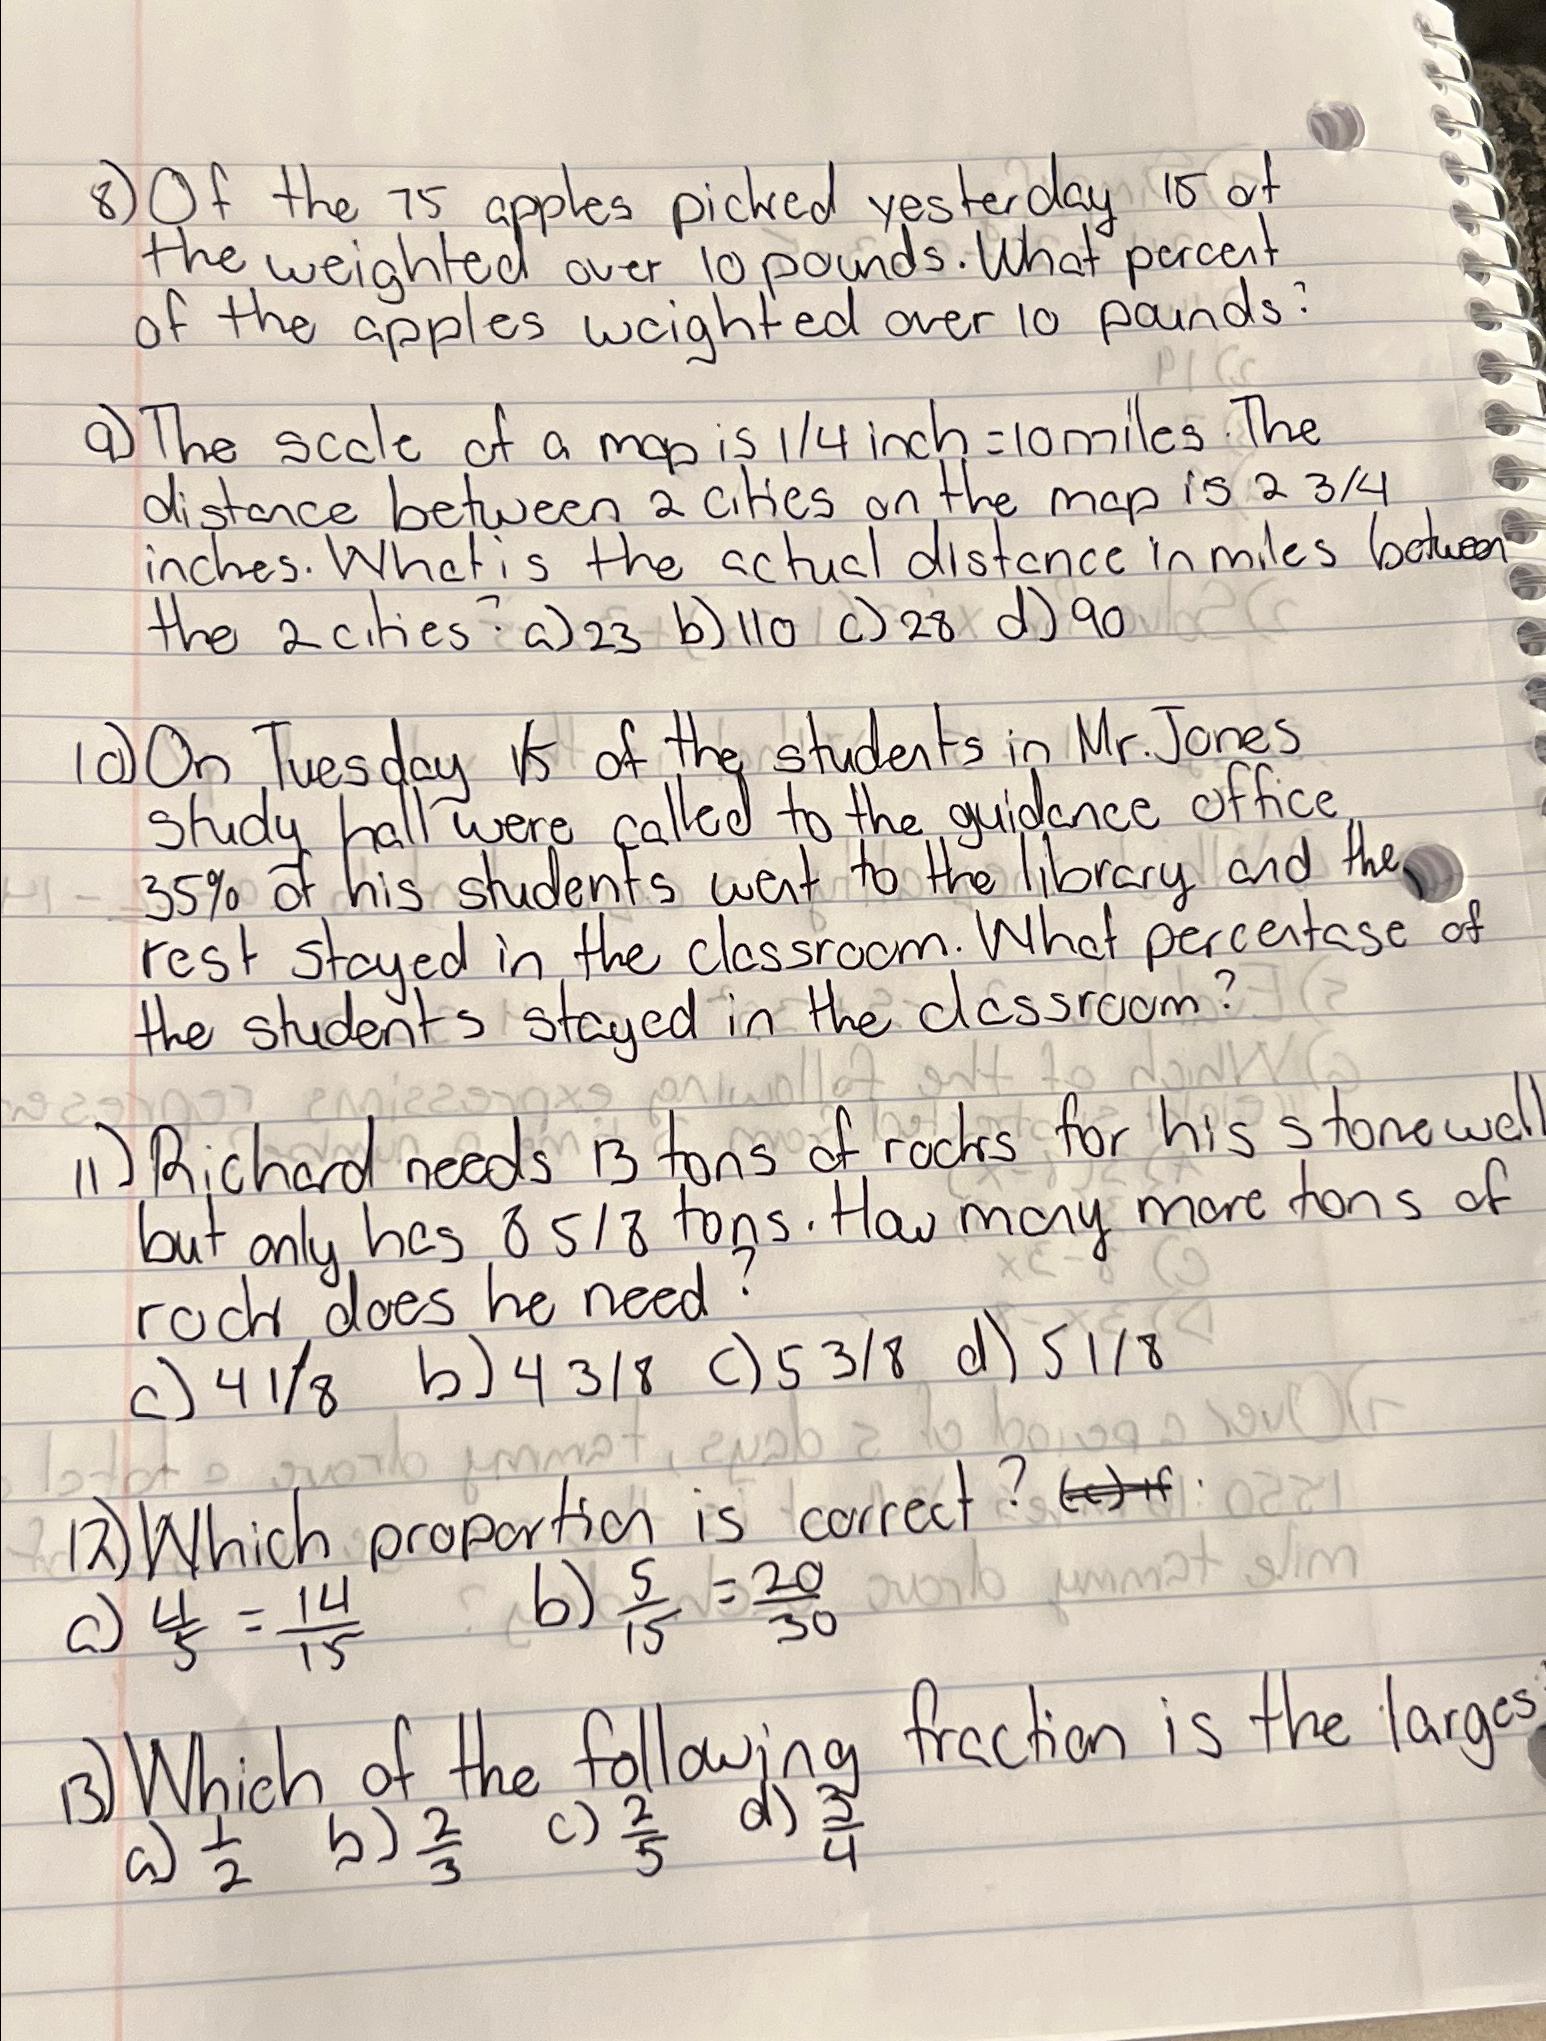 8) Of the 75 apples picked yesterday 15 of
the weighted over 10 pounds. What percent
of the apples weighted over 10 pounds?
9) The scale of a map is 1/4 inch = 10 miles. The
distance between 2 cities on the map is 2 3/4
inches. What is the actual distance in miles between
the 2 cities? a) 23 b) 110 c) 28 d) 90
10) On Tuesday 1/5 of the students in Mr. Jones
study hall were called to the guidance office
35% of his students went to the library and the
rest stayed in the classroom. What percentase of
the students stayed in the classroom?
11) Richard needs 13 tons of rocks for his stonewall
but only has 8 5/8 tons. How many more tons of
rock does he need?
a) 4 1/8 b) 4 3/8 c) 5 3/8 d) 5 1/8
12) Which proportion is correct?
a) 4/5 = 14/15 b) 5/15 = 20/30
13) Which of the following fraction is the larges
a) 1/2 b) 2/3 c) 2/5 d) 3/4